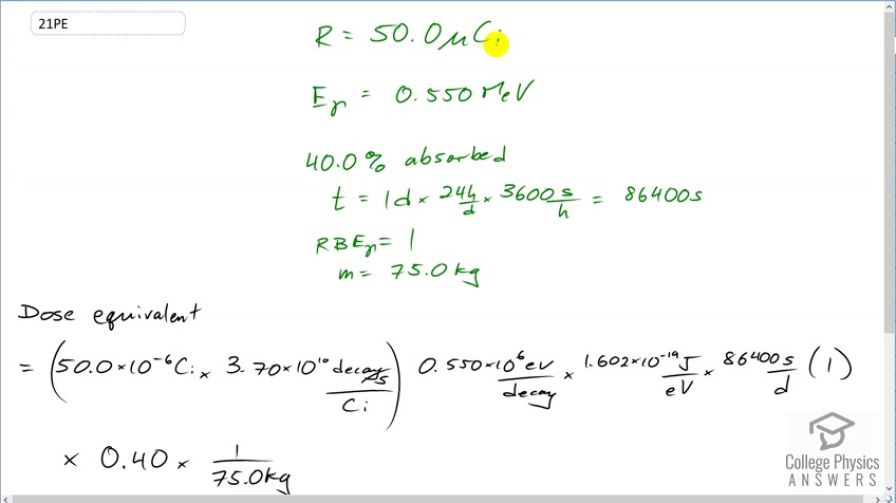 21PE
R = 50.0 μCi
Eγ = 0.550 MeV
40.0% absorbed
t = 1d × 24h/d × 3600s/h = 86400s
RBEγ = 1
m = 75.0 kg
Dose equivalent
= (50.0×10⁻⁶ Ci × 3.70×10¹⁰ decays/s / Ci) 0.550×10⁶ eV/decay × 1.602×10⁻¹⁹ J/eV × 86400 s/d (1)
× 0.40 × 1/75.0kg
College Physics
ANSWERS